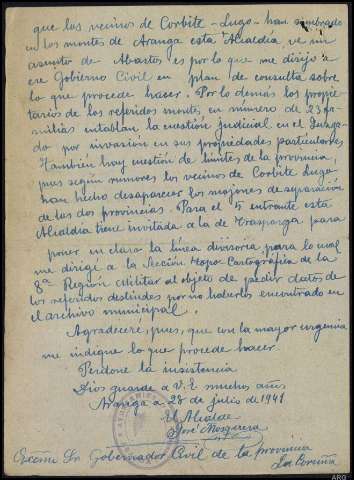 que los vecinos de Corbite-Lugo-han sembrado
en los montes de Aranga esta Alcaldía ve un
asunto de Abastos es por lo que me dirijo a
ese Gobierno Civil en plan de consulta sobre
lo que procede hacer. Por lo demás los propie-
tarios de los referidos montes en número de 23 fa-
milias entablan la cuestión judicial en el Juzga-
do por invasión en sus propiedades particulares
También hay cuestión de limites de la provincia,
pues según rumores los vecinos de Corbite Lugo
han hecho desaparecer los mojones de separación
de las dos provincias. Para el 5 entrante esta
Alcaldía tiene invitada a la de Trasparga para
poner en claro la línea divisoria para lo cual
me dirigi a la Sección Topo Cartográfica de la
8ª Región Militar al objeto de pedir datos de
los referidos deslindes por no haberlos encontrado en
el archivo municipal.
Agradecere, pues, que con la mayor urgencia
me indique lo que procede hacer
Perdone la insistencia
Dios guarde a V.E muchos años
Aranga a 28 de julio de 1941
El Alcalde
José Mosquera
Excmo Sr Gobernador Civil de la provincia
La Coruña
ARG